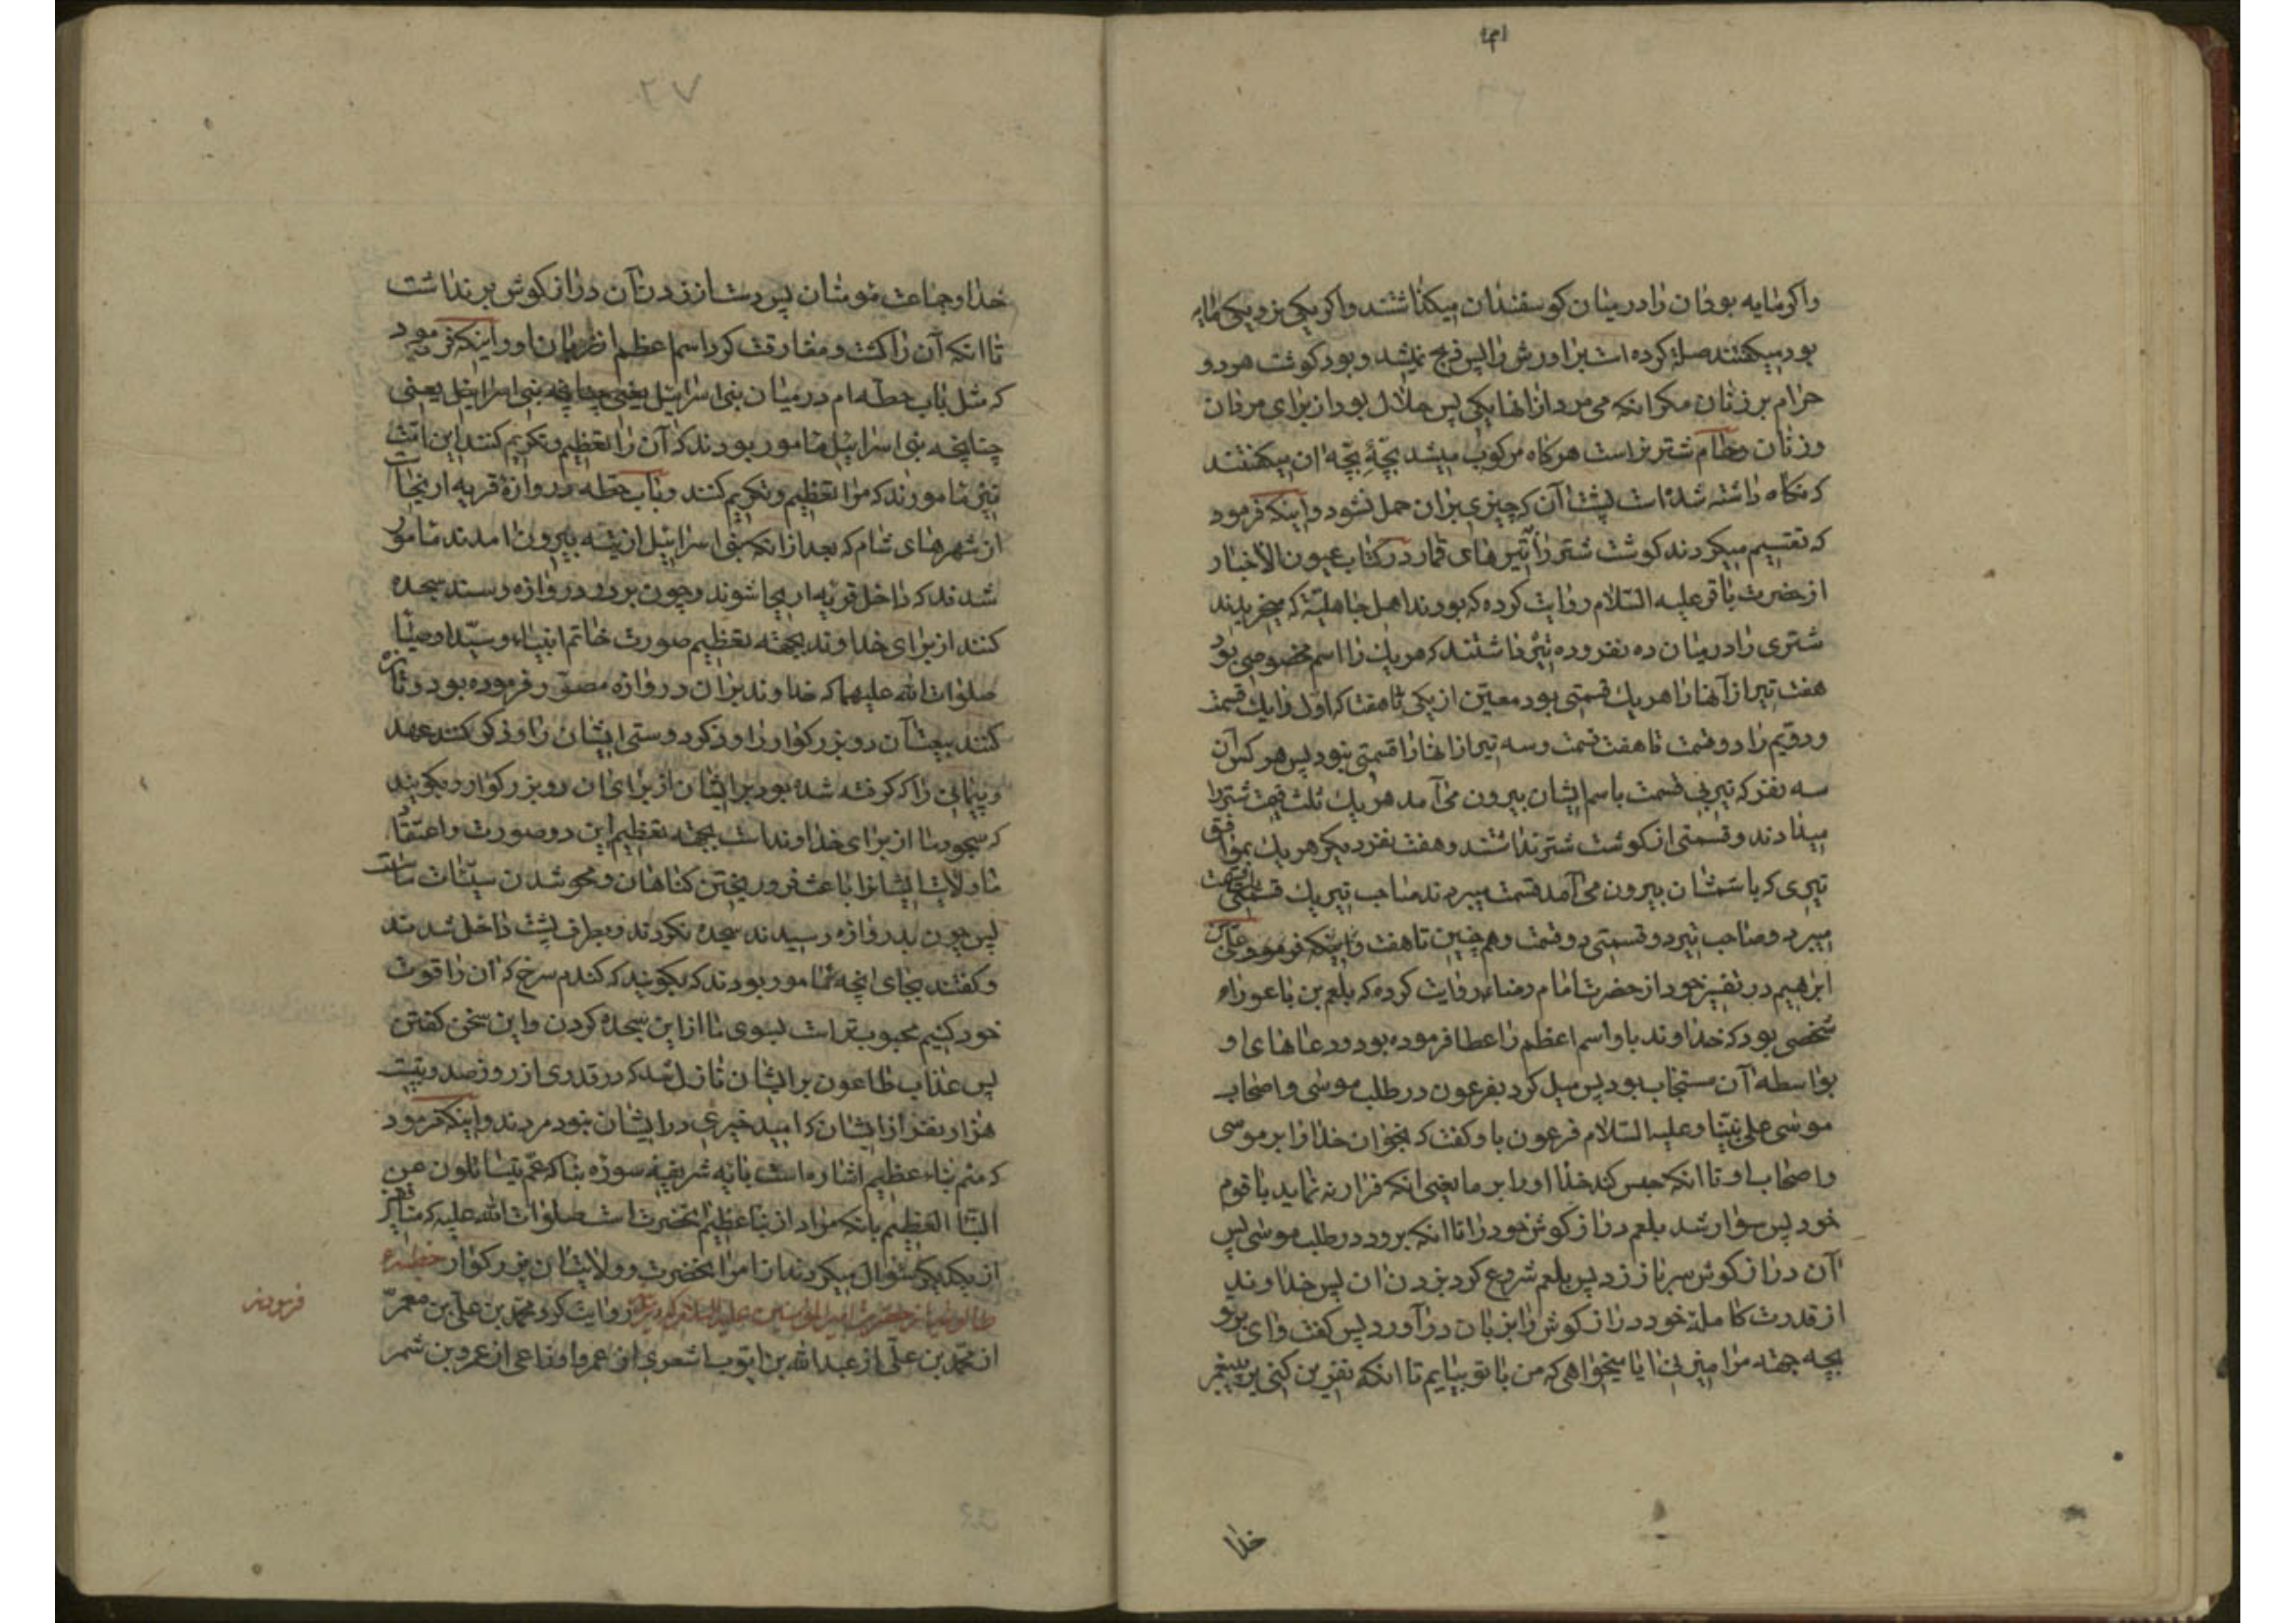 واکر مایه بود ان را در میان کوسفندان میکذاشتند واکر یکی نر ویکی مایه
بود میکفتند صله کرده است برادرش را پس ذبح نمیشد و بود کوشت هر دو
حرام بر زنان مکر انکه می‌مرد از انها یکی پس حلال بود از برای مردان
وزنان وحام شتر نر است هر کاه مرکوب میشد بچّهٔ بچّه ان میکفتند
که نکاه داشته شده است پشت آن که چیزی بر ان حمل نشود و اینکه فرمود
که تقسیم میکردند کوشت شتر را بتیرهای قمار در کتاب عیون الاخبار
از حضرت باقر علیه السّلام روایت کرده که بودند اهل جاهلیّة که میخریدند
شتری را در میان ده نفر وده تیر داشتند که هر یک را اسم مخصوصی بود
هفت تیر از آنها را هر یک قسمتی بود معیّن از یکی تا هفت که اول را یک قسمت
ودویّم را دو قسمت تا هفت قسمت وسه تیر از انها را قسمتی نبود پس هر کس آن
سه نفر که تیر بی قسمت باسم ایشان بیرون می‌آمد هر یک ثلث قیمت شتر را
میدادند وقسمتی از کوشت شتر نداشتند وهفت نفر دیکر هر یک بموافق
تیری که باسمشان بیرون می‌آمد قسمت میبردند صاحب تیر یک قسمتی
میبرد وصاحب تیر دو قسمتی دو قسمت وهم چنین تا هفت و اینکه فرمود علی بن
ابرهیم در تفسیر خود از حضرت امام رضاء روایت کرده که بلعم بن باعوراء
شخصی بود که خداوند باو اسم اعظم را عطا فرموده بود ودعاهای او
بواسطه آن مستجاب بود پس میل کرد بفرعون در طلب موسی واصحاب
موسی علی نبیّنا وعلیه السّلام فرعون باو کفت که بخوان خدا را بر موسی
واصحاب او تا انکه حبس کند خدا او را بر ما یعنی انکه فرار نه نماید با قوم
خود پس سوار شد بلعم دراز کوش خود را تا انکه برود در طلب موسی پس
آن دراز کوش سر باز زد پس بلعم شروع کرد بزدن ان پس خداوند
از قدرت کامله خود دراز کوش را بزبان در آورد پس کفت وای بر تو
بچه جهته مرا میزنی ایا میخواهی که من با تو بیایم تا انکه نفرین کنی بر پیغمبر
خدا
۲۷
خدا وجماعت مومنان پس دست از زدن آن دراز کوش بر نداشت
تا انکه آن را کشت ومفارقت کرد اسم اعظم از زبان او و اینکه فرمود
که مثل باب حطّه ام در میان بنی اسرائیل یعنی چنانچه بنی اسرائیل یعنی
چنانچه بنی اسرائیل مامور بودند که آن را تعظیم وتکریم کنند این امّت
نیز مامورند که مرا تعظیم وتکریم کنند وباب حطّه دروازهٔ قریه اریحا است
از شهرهای شام که بعد از انکه بنی اسرائیل از تیه بیرون امدند مامور
شدند که داخل قریه اریحا شوند وچون بر در دروازه رسند سجده
کنند از برای خداوند بجهته تعظیم صورت خاتم انبیاء وسیّد اوصیا
صلوات الله علیهما که خداوند بر ان دروازه مصوّر فرموده بود وتازه
کنند بیعت آن دو بزرکوار را وذکر دوستی ایشان را وذکر کنند عهد
وپیمانی را که کرفته شده بود بر ایشان از برای ان دو بزرکوار وبکویند
که سجود ما از برای خداوند است بجهته تعظیم این دو صورت واعتقاد
ما ولایت ایشانرا باعث فرو ریختن کناهان ومحو شدن سیّئات ماست
پس چون بدروازه رسیدند سجده نکردند وبطرف پشت داخل شدند
وکفتند بجای انچه مامور بودند که بکویند که کندم سرخ که ان را قوت
خود کنیم محبوب‌تر است بسوی ما از این سجده کردن واین سخن کفتن
پس عذاب طاعون بر ایشان نازل شد که در قدری از روز صد وبیست
هزار نفر از ایشان که امید خیری در ایشان نبود مردند و اینکه فرمود
که منم نباء عظیم اشاره است بآیه شریفه سوره نبا که عمّ یتسائلون عن
النّبا العظیم بانکه مراد از نبا عظیم انحضرت است صلوات الله علیه که منافقین
از یکدیکر سئوال میکردند از امر انحضرت و ولایت ان بزرکوار خطبه
طالوتیه از حضرت امیر المومنین علیه السّلام روایت کرد محمّد بن علی بن معمرّ
فرمودند
از محمّد بن علی از عبد الله بن ایّوب اشعری از عمرو اوزاعی از عمرو بن شمر